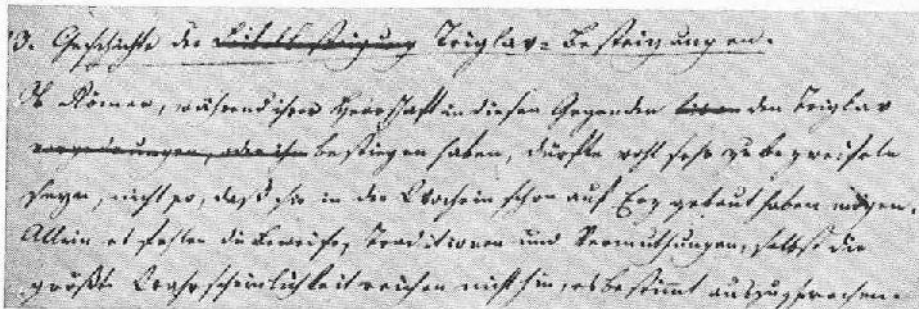 3. Geschichte der Triglav-Besteigungen.
Ob Römer, während ihrer Herrschaft in diesen Gegenden den Triglav
bestiegen haben, dürfte wohl sehr zu bezweifeln
seyn, nicht so, daß sie in der Wochein schon auf Erz gebaut haben mögen.
Allein es fehlen die Beweise, Traditionen und Vermuthungen, selbst die
größte Wahrscheinlichkeit reichen nicht hin, es bestimmt auszusprechen.